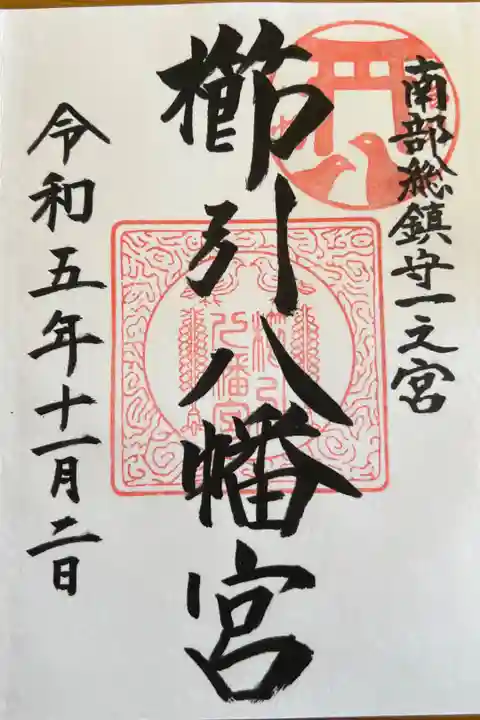 南部総鎮守一之宮
櫛引八幡宮
令和五年十一月二日